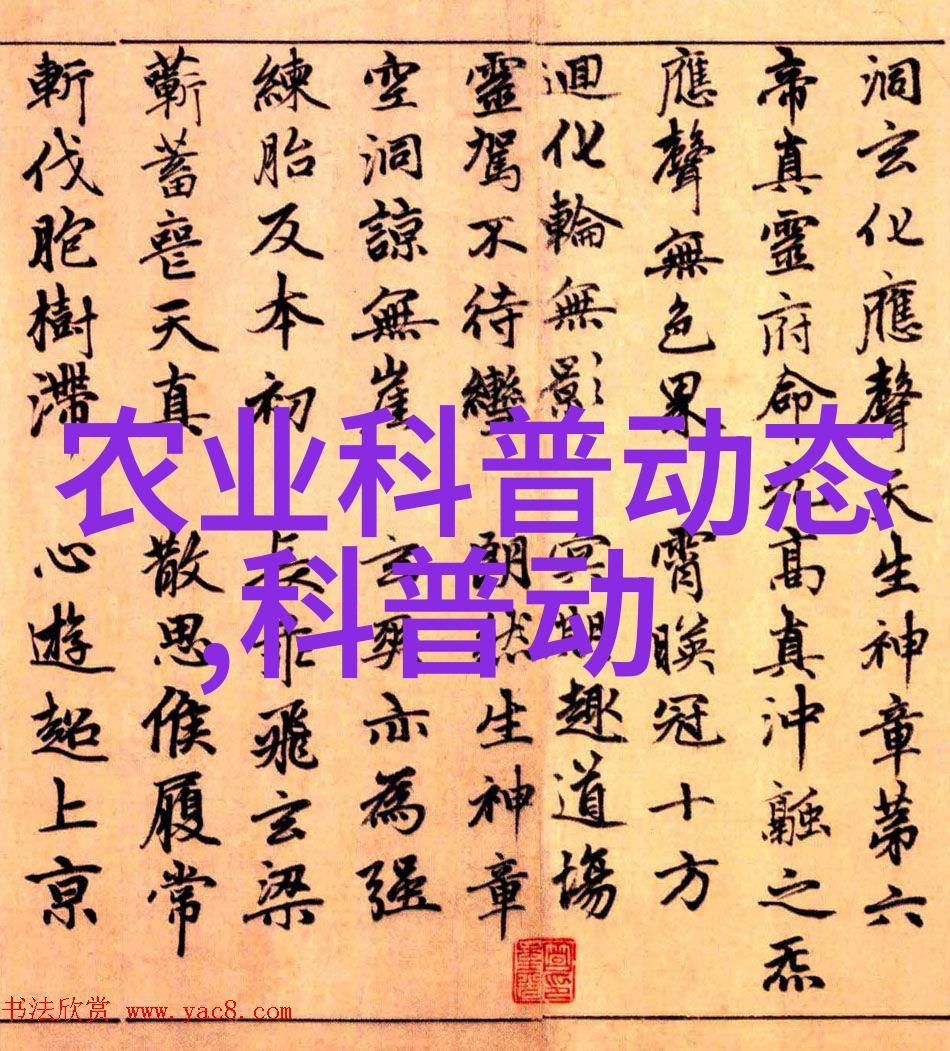 洞玄化應聲天生神章第六
帝真靈府命元高真沖融之炁
應聲無色界霄暎冠十方
迴化輪無影冥期趣道場
靈駕不待轡朗然生神章
空洞諒無崖玄爽亦為強
練胎反本初長乖飛玄梁
蘄蓄喪天真散思候履常
斬伐胞樹滯心遊超上京
农业科普动态
,科普动
书法欣赏 www.yac8.com